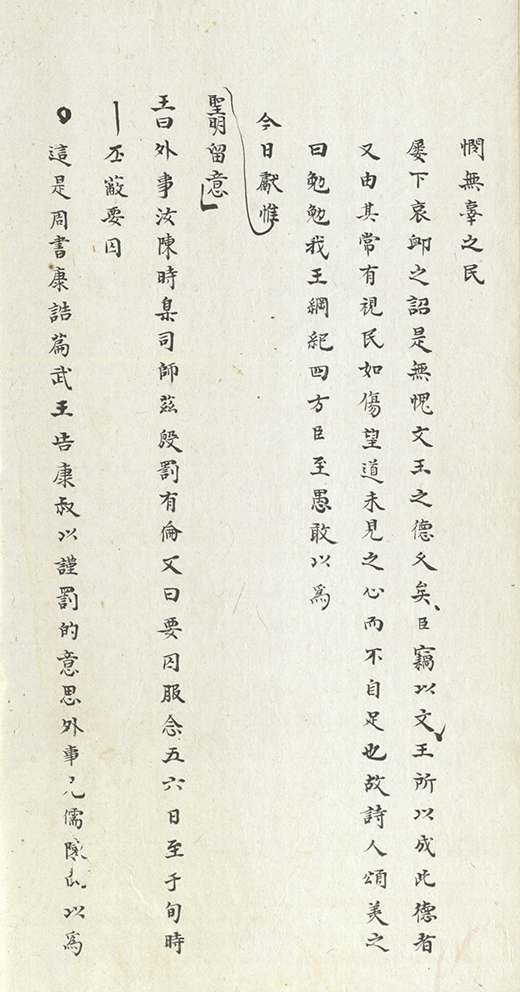 憫無辜之民
屡下哀卹之詔是無愧文王之德久矣臣竊以文王所以成此德者
又由其常有視民如傷望道未見之心而不自足也故詩人頌美之
曰勉勉我王綱紀四方臣至愚敢以爲
今日獻惟
聖明留意
王曰外事汝陳時臬司師茲殷罰有倫又曰要囚服念五六日至于旬時
丕蔽要囚
這是周書康誥篇武王告康叔以謹罰的意思外事儒陳以爲